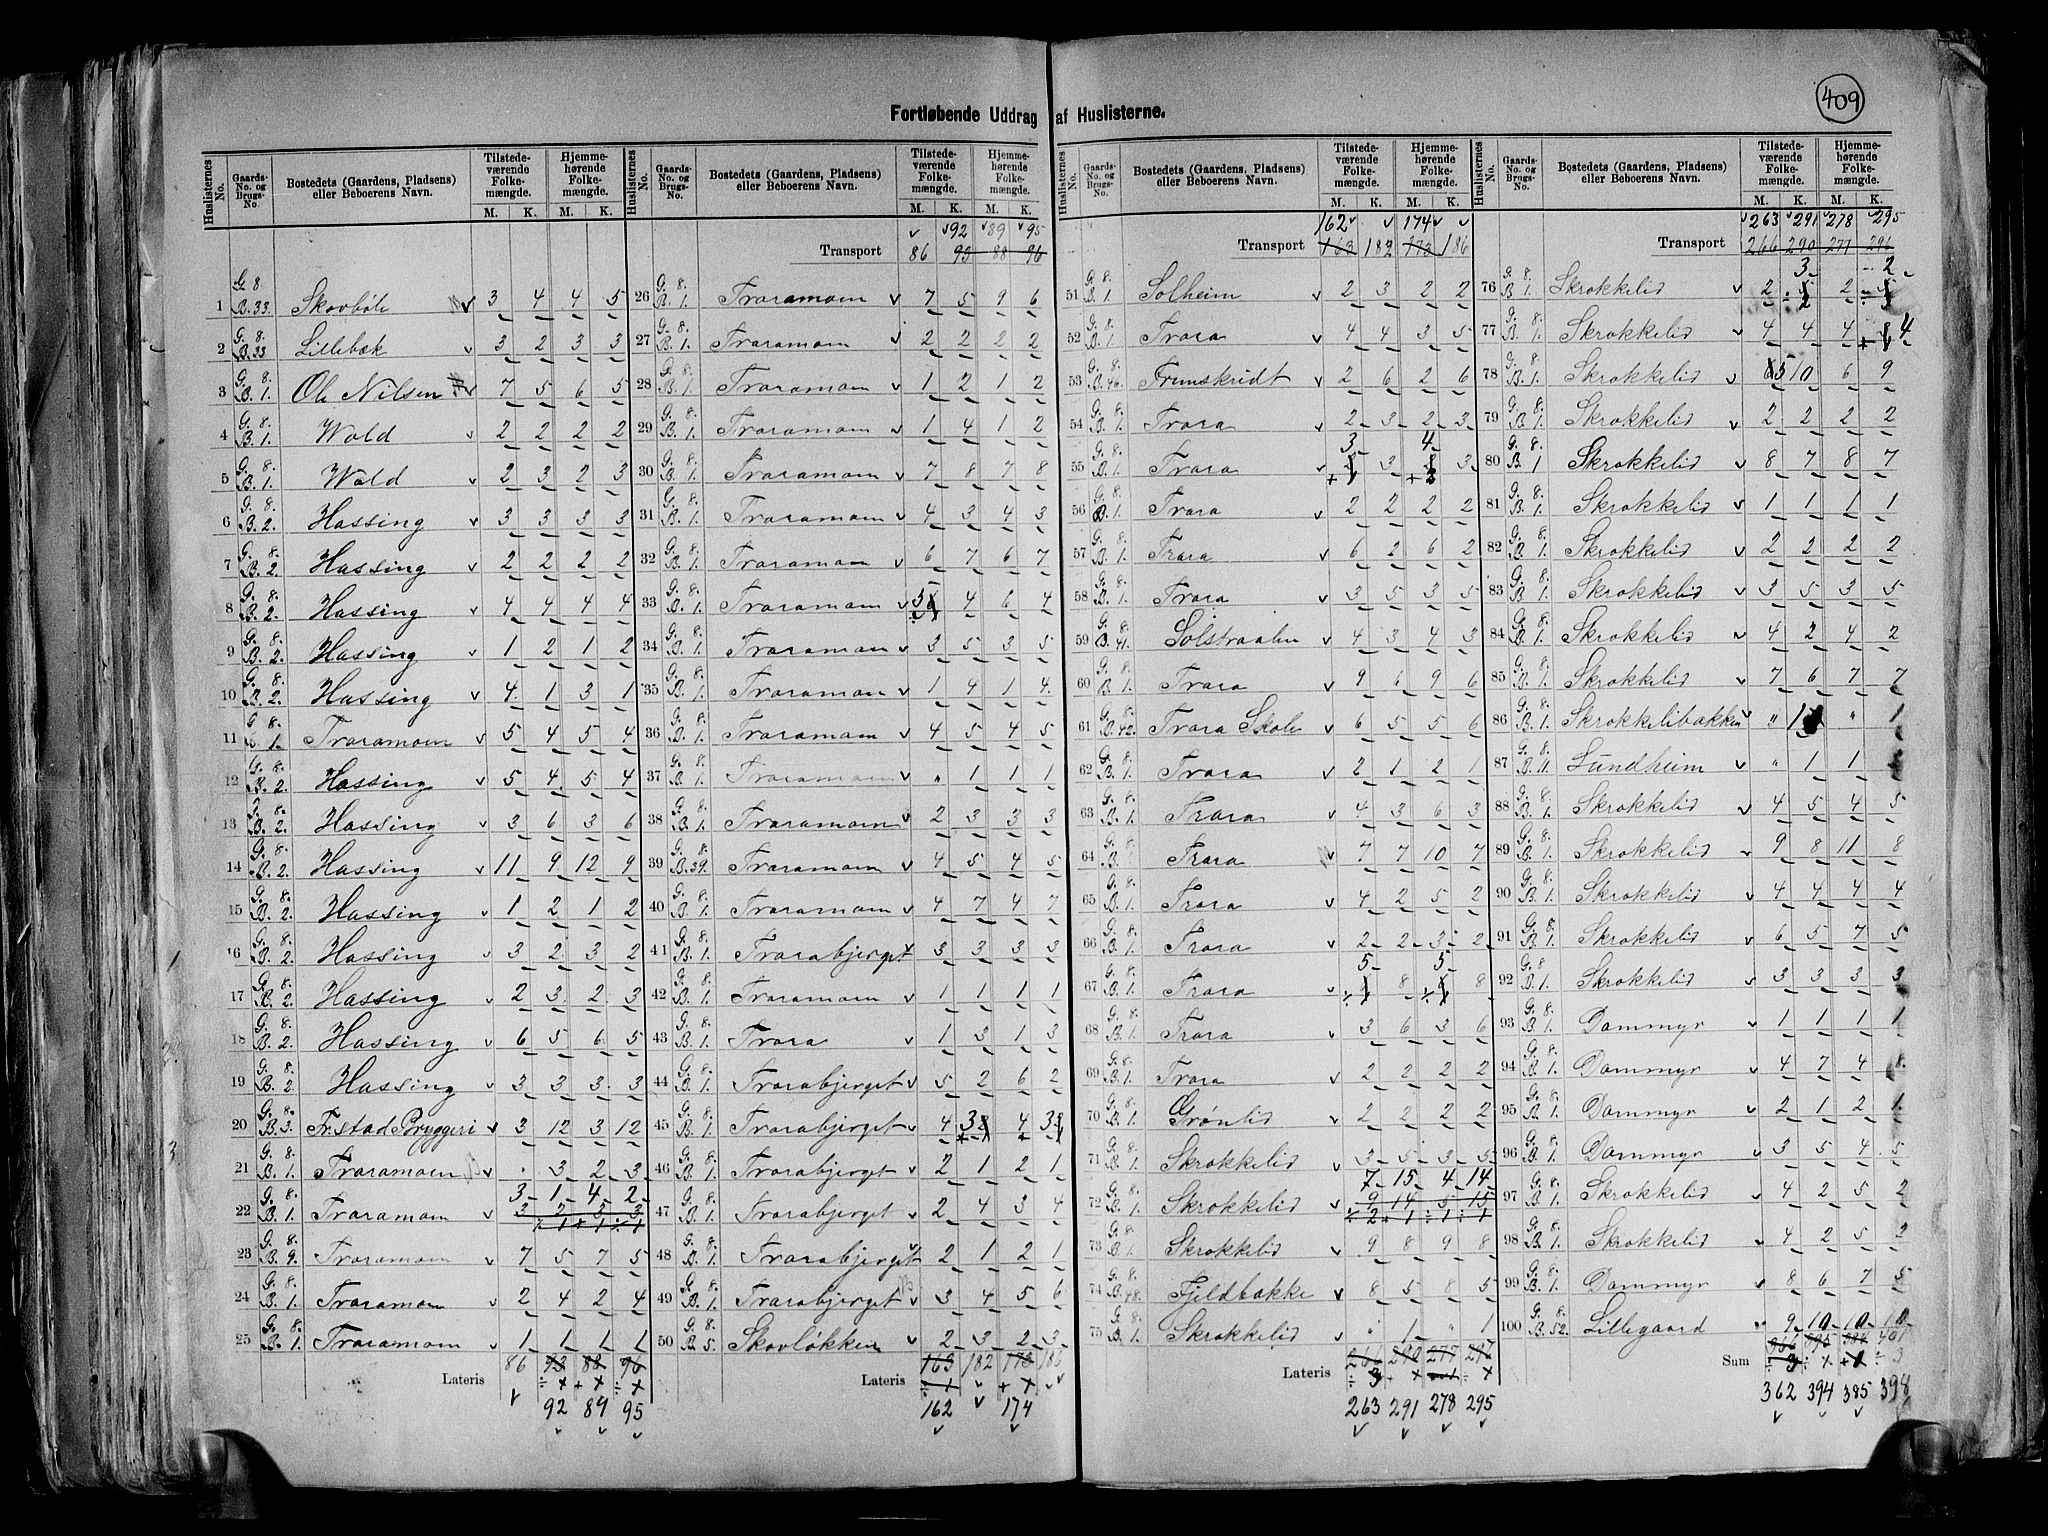 409
Fortløbende Uddrag af Huslisterne.
Huslisternes No. | Gaards-No. og Brugs-No. | Bostedets (Gaardens, Pladsens) eller Beboerens Navn. | Tilstedeværende Folkemængde. M. K. | Hjemmehørende Folkemængde. M. K.
1 G. 8. B. 33. Skovbøle 3 4 4 5
2 G. 8. B. 33 Lillebæk 3 2 3 3
3 G. 8. B. 1. Ole Nilsen 7 5 6 5
4 G. 8. B. 1. Wold 2 2 2 2
5 G. 8. B. 1. Wold 2 3 2 3
6 G. 8. B. 2. Hassing 3 3 3 3
7 G. 8. B. 2. Hassing 2 2 2 2
8 G. 8. B. 2. Hassing 4 4 4 4
9 G. 8. B. 2. Hassing 1 2 1 2
10 G. 8. B. 2. Hassing 4 1 3 1
11 G. 8. B. 1. Traramoen 5 4 5 4
12 G. 8. B. 2. Hassing 5 4 5 4
13 G. 8. B. 2. Hassing 3 6 3 6
14 G. 8. B. 2. Hassing 11 9 12 9
15 G. 8. B. 2. Hassing 1 2 1 2
16 G. 8. B. 2. Hassing 3 2 3 2
17 G. 8. B. 2. Hassing 2 3 2 3
18 G. 8. B. 2. Hassing 6 5 6 5
19 G. 8. B. 2 Hassing 3 3 3 3
20 G. 8. B. 3. Fr.stad Bryggeri 3 12 3 12
21 G. 8. B. 1. Traramoen . 3 2 3
3 1 4 2
22 G. 8. B. 1. Traramoen 3 2 3 3
÷1 +1 ÷1
23 G. 8. B. 9. Traramoen 7 5 7 5
24 G. 8. B. 1. Traramoen 2 4 2 4
25 G. 8. B. 1. Traramoen 1 1 1 1
Lateris 86 93 88 96
92 89 95
92 89 95
Transport 86 93 88 96
26 G. 8. B. 1. Traramoen 7 5 9 6
27 G. 8. B. 1. Traramoen 2 2 2 2
28 G. 8. B. 1. Traramoen 1 2 1 2
29 G. 8. B. 1. Traramoen 1 4 1 2
30 G. 8. B. 1. Traramoen 7 8 7 8
31 G. 8. B. 1. Traramoen 4 3 4 3
32 G. 8. B. 1. Traramoen 6 7 6 7
33 G. 8. B. 1. Traramoen 5 4 6 4
34 G. 8. B. 1. Traramoen 3 5 3 5
35 G. 8. B. 1. Traramoen 1 4 1 4.
36 G. 8. B. 1. Traramoen 4 5 4 5
37 G. 8. B. 1. Traramoen " 1 1 1
38 G. 8. B. 1. Traramoen 2 3 3 3
39 G. 8. B. 39. Traramoen 4 5 4 5
40 G. 8. B. 1. Traramoen 4 7 4 7
41 G. 8. B. 1. Trarabjerget 3 3 3 3
42 G. 8. B. 1. Traramoen 1 1 1 1
43 G. 8. B. 1. Trara 1 3 1 3
44 G. 8. B. 1. Trarabjerget 5 2 6 2
45 G. 8. B. 1. Trarabjerget 4 3 4 3
46 G. 8. B. 1. Trarabjerget 2 1 2 1
47 G. 8. B. 1. Trarabjerget 2 4 3 4
48 G. 8. B. 1. Trarabjerget 2 1 2 1
49 G. 8. B. 1. Trarabjerget 3 4 5 6
50 G. 8. B. 5. Skovløkken 2 3 2 3
Lateris 163 182 173 186
162 174
Huslisternes No. | Gaards-No. og Brugs-No. | Bostedets (Gaardens, Pladsens) eller Beboerens Navn. | Tilstedeværende Folkemængde. M. K. | Hjemmehørende Folkemængde. M. K.
162 174
Transport 163 182 173 186
51 G. 8. B. 1 Solheim 2 3 2 2
52 G. 8. B. 1. Trara 4 4 3 5
53 G. 8. B. 46. Fremskridt 2 6 2 6
54 G. 8. B. 1. Trara 2 3 2 3
3 4
55 G. 8. B. 1. Trara 3 3
56 G. 8. B. 1. Trara 2 2 2 2
57 G. 8. B. 1. Trara 6 2 6 2
58 G. 8. B. 1. Trara 3 5 3 5
59 G. 8. B. 41. Solstraalen 4 3 4 3
60 G. 8. B. 1. Trara 9 6 9 6
61 G. 8. B. 42. Trara Skole 6 5 5 6
62 G. 8. B. 1. Trara 2 1 2 1
63 G. 8. B. 1. Trara 4 3 6 3
64 G. 8. B. Trara 7 7 10 7
65 G. 8. B. 1. Trara 4 2 5 2
66 G. 8. B. 1. Trara 2 2 3 2
5 5
67 G. 8. B. 1. Trara 8 8
68 G. 8. B. 1. Trara 3 6 3 6
69 G. 8. B. 1. Trara 2 2 2 2
70 G. 8. B. 1. Grønlid 2 2 2 2
71 G. 8. B. 1. Skrokkelid 3 5 3 5
7 15 4 14
72 G. 8. B. 1. Skrokkelid 9 14 5 15
÷2 +1 ÷1 ÷1
73 G. 8. B. 1. Skrokkelid 9 8 9 8
74 G. 8. B. 48. Fjeldbakke 8 5 8 5
75 G. 8. B. 1. Skrokkelid " 1 " 1
Lateris 266 290 277 296
263 291 278 295
263 291 278 295
Transport 266 290 277 296
76 G. 8. B. 1. Skrokkelid 2 3 2 2
77 G. 8. B. 1. Skrokkelid 4 4 4 4
78 G. 8. B. 1. Skrokkelid 5 10 6 9
79 G. 8. B. 1. Skrokkelid 2 2 2 2
80 G. 8. B. 1 Skrokkelid 8 7 8 7
81 G. 8. B. 1. Skrokkelid 1 1 1 1
82 G. 8. B. 1. Skrokkelid 2 2 2 2
83 G. 8. B. 1. Skrokkelid 3 5 3 5
84 G. 8. B. 1. Skrokkelid 4 2 4 2
85 G. 8. B. 1. Skrokkelid 7 6 7 7
86 G. 8. B. 1. Skrokkelibakken " 1 " 1
87 G. 8. B. 11. Lundheim " 1 1
88 G. 8. B. 1. Skrokkelid 4 5 4 5
89 G. 8. B. 1. Skrokkelid 9 8 11 8
90 G. 8. B. 1. Skrokkelid 4 4 4 4
91 G. 8. B. 1. Skrokkelid 6 5 7 5
92 G. 8 B. 1. Skrokkelid 3 3 3 3
93 G. 8. B. 1. Dammyr 1 1 1 1
94 G. 8. B. 1. Dammyr 4 7 4 8
95 G. 8. B. 1. Dammyr 2 1 2 1
96 G. 8. B. 1. Dammyr 3 5 4 5
97 G. 8. B. 1. Skrokkelid 4 2 5 2
98 G. 8. B. 1. Skrokkelid 4 2 5 2
99 G. 8. B. 1. Dammyr 8 6 7 5
100 G. 8. B. 52. Lillegaard 9 10 10 10
Sum 366 395 384 401
362 394 385 398